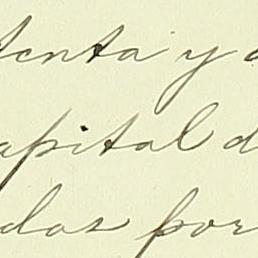 tenta y
apital d
das por